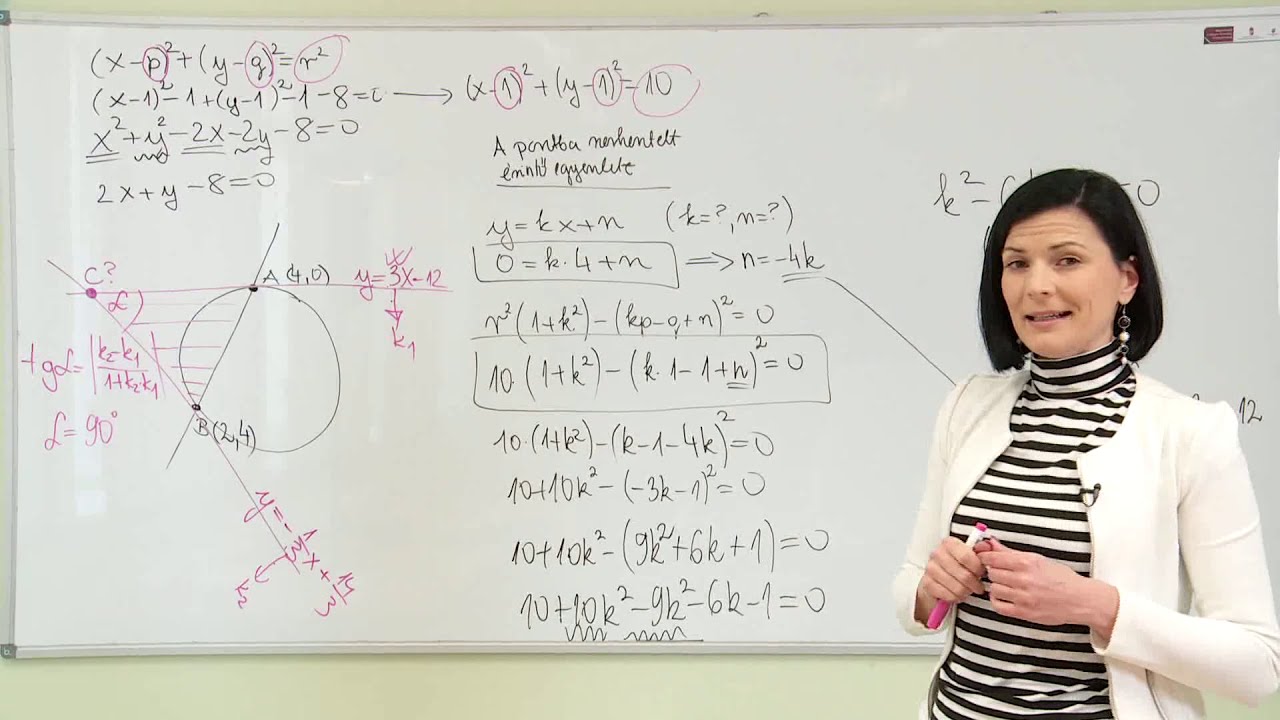 (x-p)²+(y-q)²=r²
(x-1)²-1+(y-1)²-1-8=0 → (x-1)²+(y-1)²=10
x²+y²-2x-2y-8=0
2x+y-8=0
A pontba
érintő egyenlete
y=kx+n (k=?, n=?)
0=k·4+n ⇒ n=-4k
r²(1+k²)-(kp-q+n)²=0
10·(1+k²)-(k·1-1+n)²=0
10·(1+k²)-(k-1-4k)²=0
10+10k²-(-3k-1)²=0
10+10k²-(9k²+6k+1)=0
10+10k²-9k²-6k-1=0
C?
α
A(4,0)
y=3x-12
k₁
tgα=|k₂-k₁/1+k₂·k₁|
α=90°
B(2,4)
y=-1/3x+
k₂
k²-
=0
12